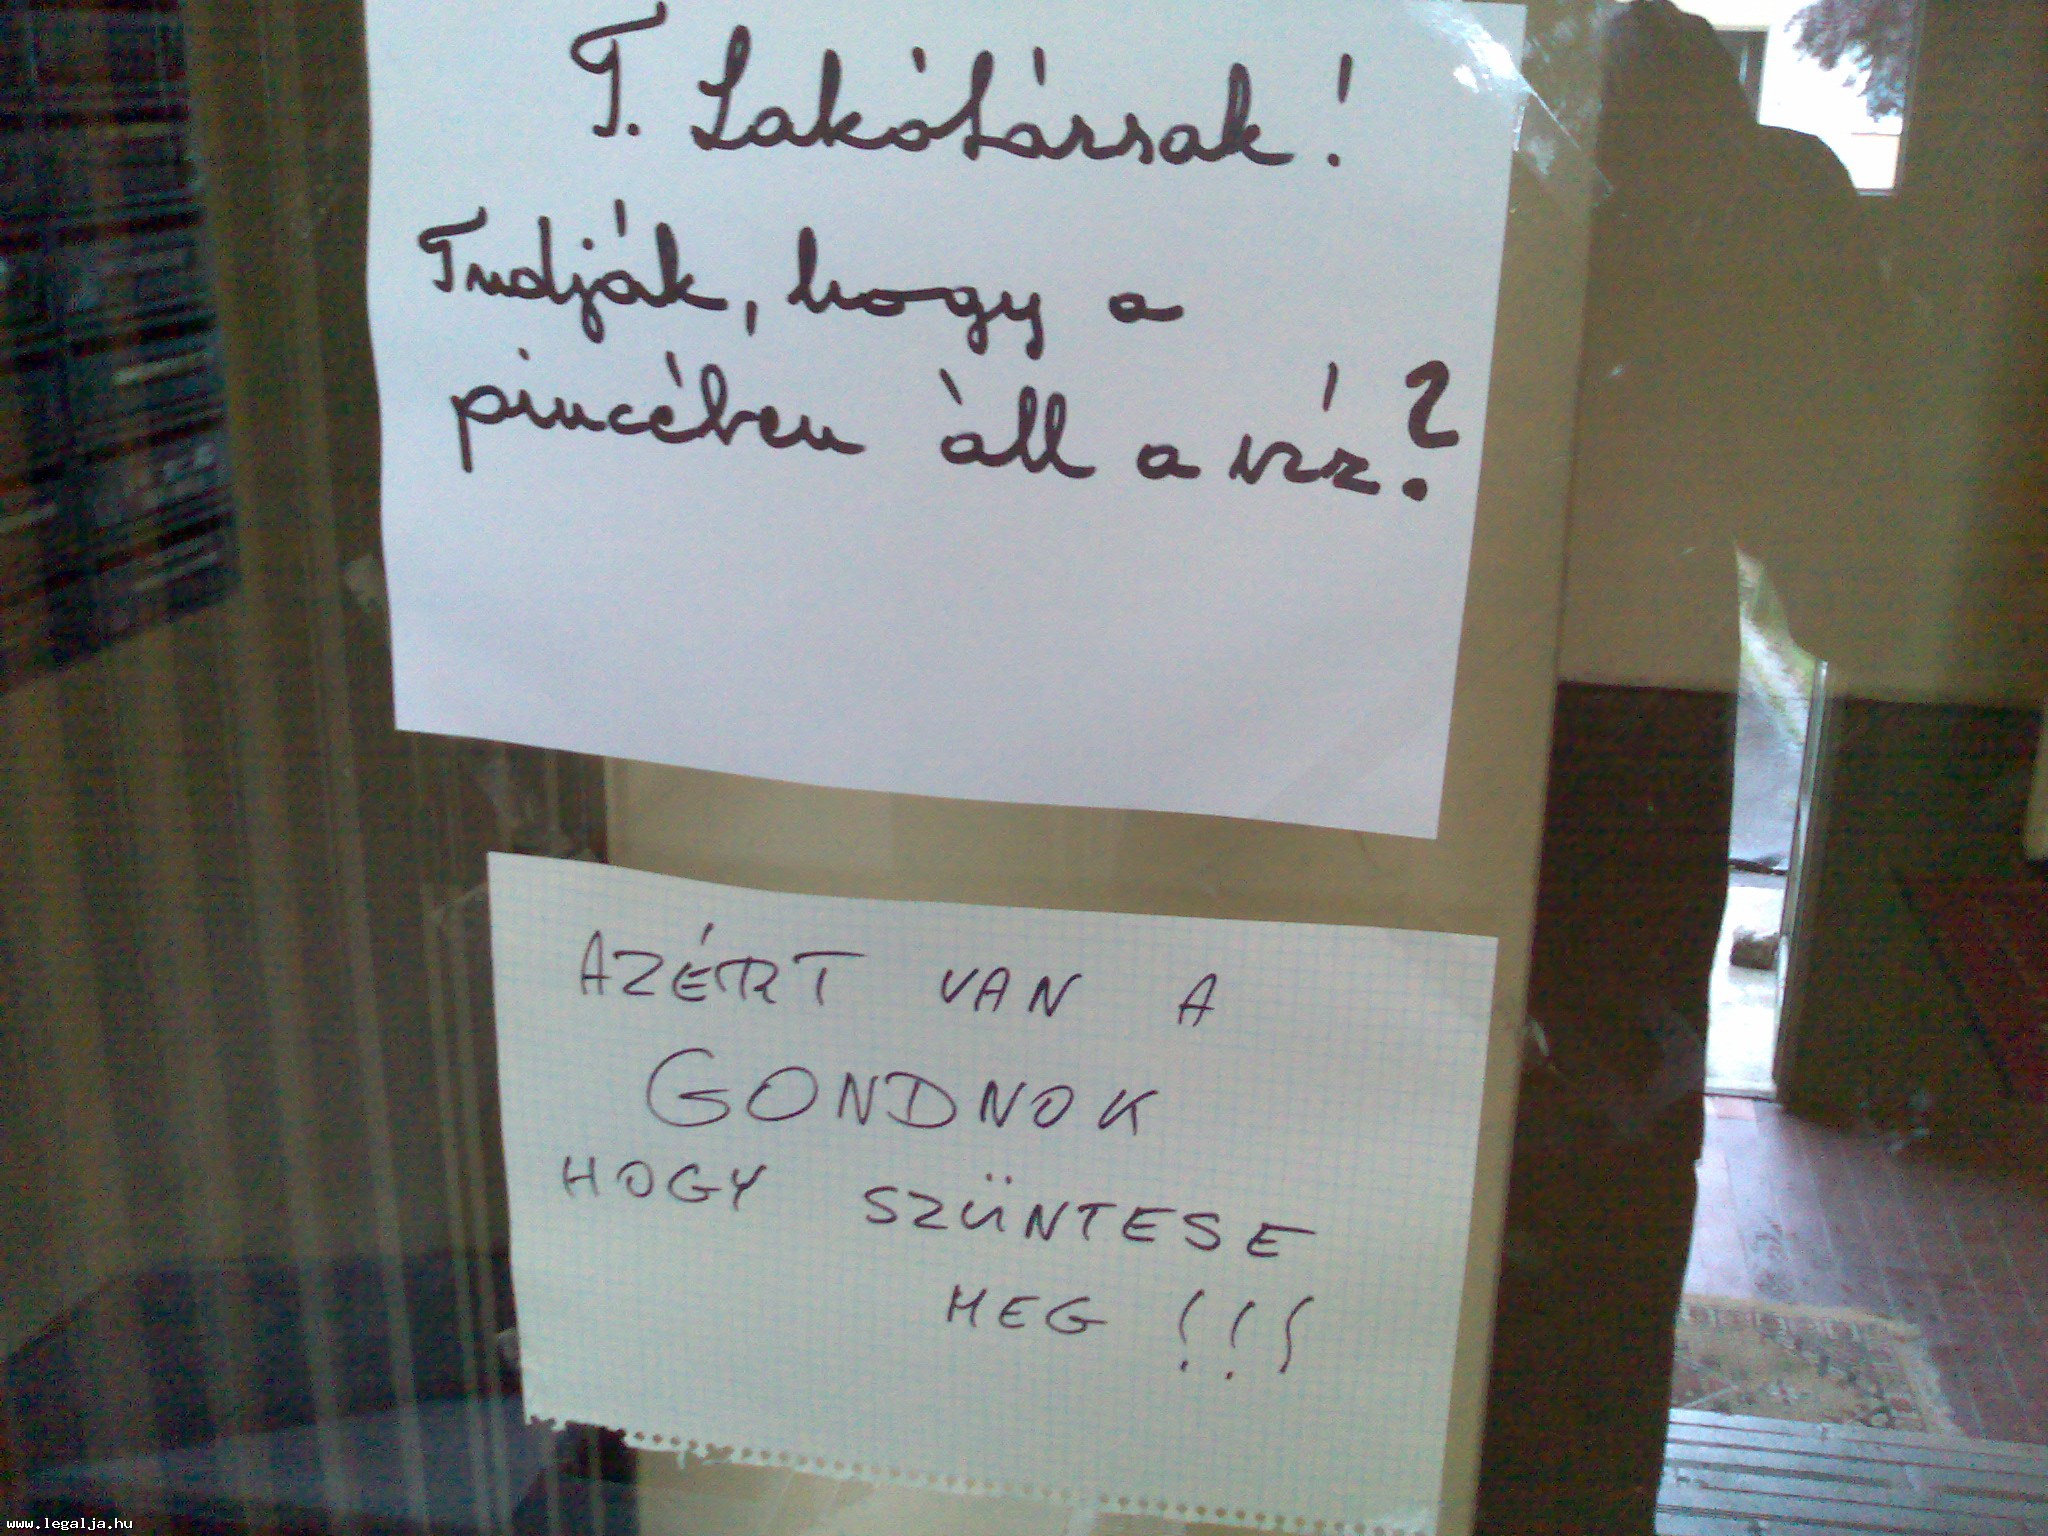 T. Lakótársak!
Tudják, hogy a
pincében àll a víz?
AZÉRT VAN A
GONDNOK
HOGY SZÜNTESE
MEG !!!
www.legalja.hu